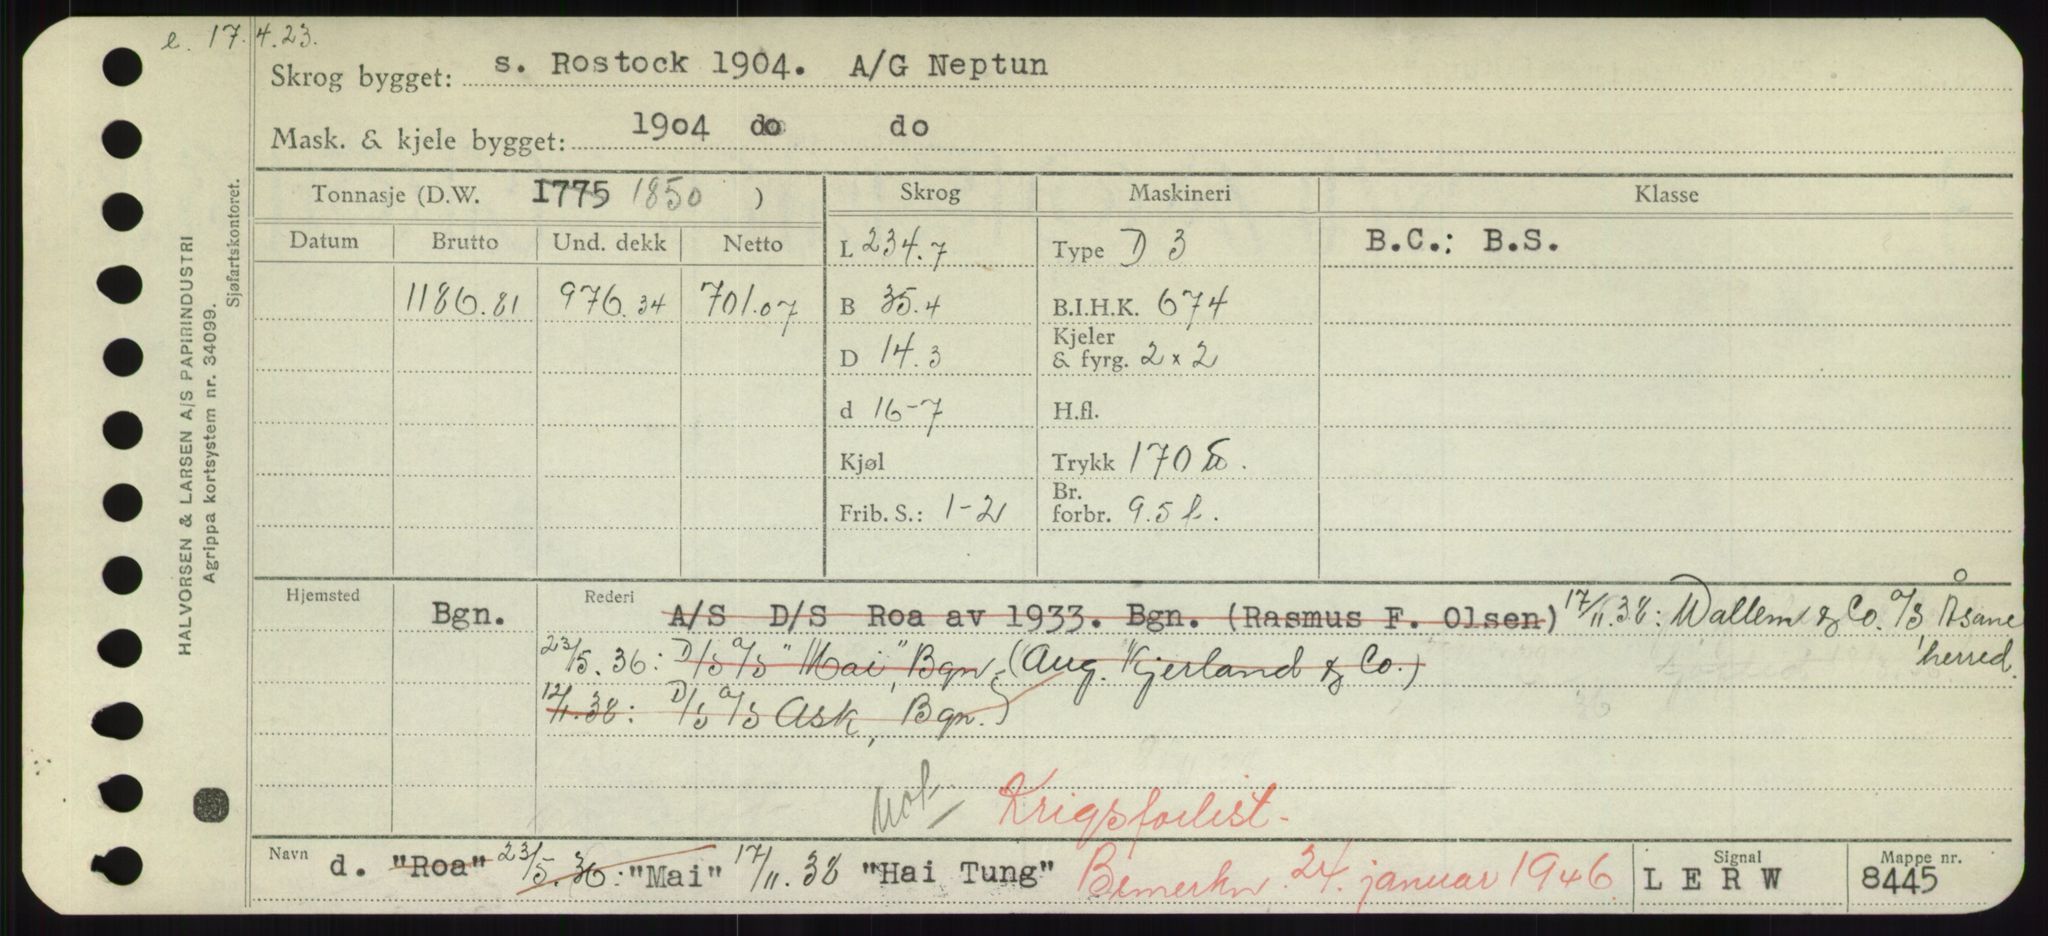 e. 17.4.23.
Skrog bygget: s. Rostock 1904. A/G Neptun
Mask. & kjele bygget: 1904 do do
HALVORSEN & LARSEN A/S PAPIRINDUSTRI
Agrippa kortsystem nr. 34099.
Sjøfartskontoret.
Tonnasje (D.W. 1775 1850 ) Skrog Maskineri Klasse
Datum Brutto Und. dekk Netto L 234.7 Type D 3 B.C.: B.S.
1186.81 976.34 701.07 B 35.4 B.I.H.K. 674
D 14.3 Kjeler & fyrg. 2 x 2
d 16-7 H.fl.
Kjøl Trykk 170 ℔.
Frib. S.: 1-2 Br. forbr. 9.5 t.
Hjemsted Bgn. Rederi A/S D/S Roa av 1933. Bgn. (Rasmus F. Olsen) 17/11.38: Wallem & Co. A/S Åsane herred.
23/5.36: D/S A/S "Mai", Bgn. (Aug. Kjerland & Co.)
12/1.38: D/S A/S Ask, Bgn.
Krigsforlist.
Navn d. "Roa" 23/5.36: "Mai" 17/11.38 "Hai Tung" Bemerkn. 24. januar 1946 Signal L E R W Mappe nr. 8445